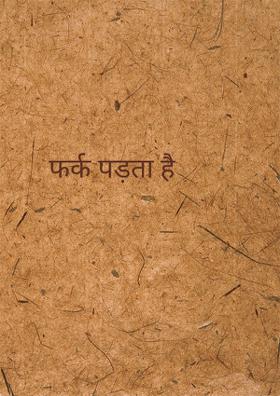 फर्क पड़ता है